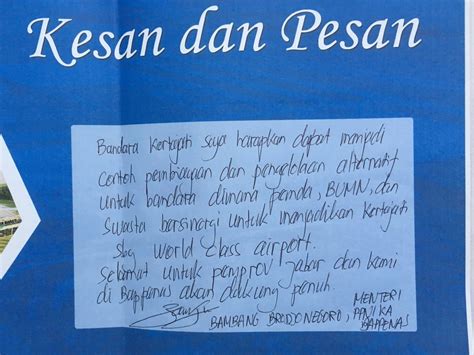 Kesan dan Pesan
Bandara Kertajati saya harapkan dapat menjadi
contoh pembiayaan dan pengelolaan alternatif
untuk bandara dimana pemda, BUMN, dan
swasta bersinergi untuk menjadikan Kertajati
sbg world class airport.
Selamat untuk pemprov Jabar dan kami
di Bappenas akan dukung penuh.
BAMBANG BRODJONEGORO, MENTERI
PPN / KA
BAPPENAS